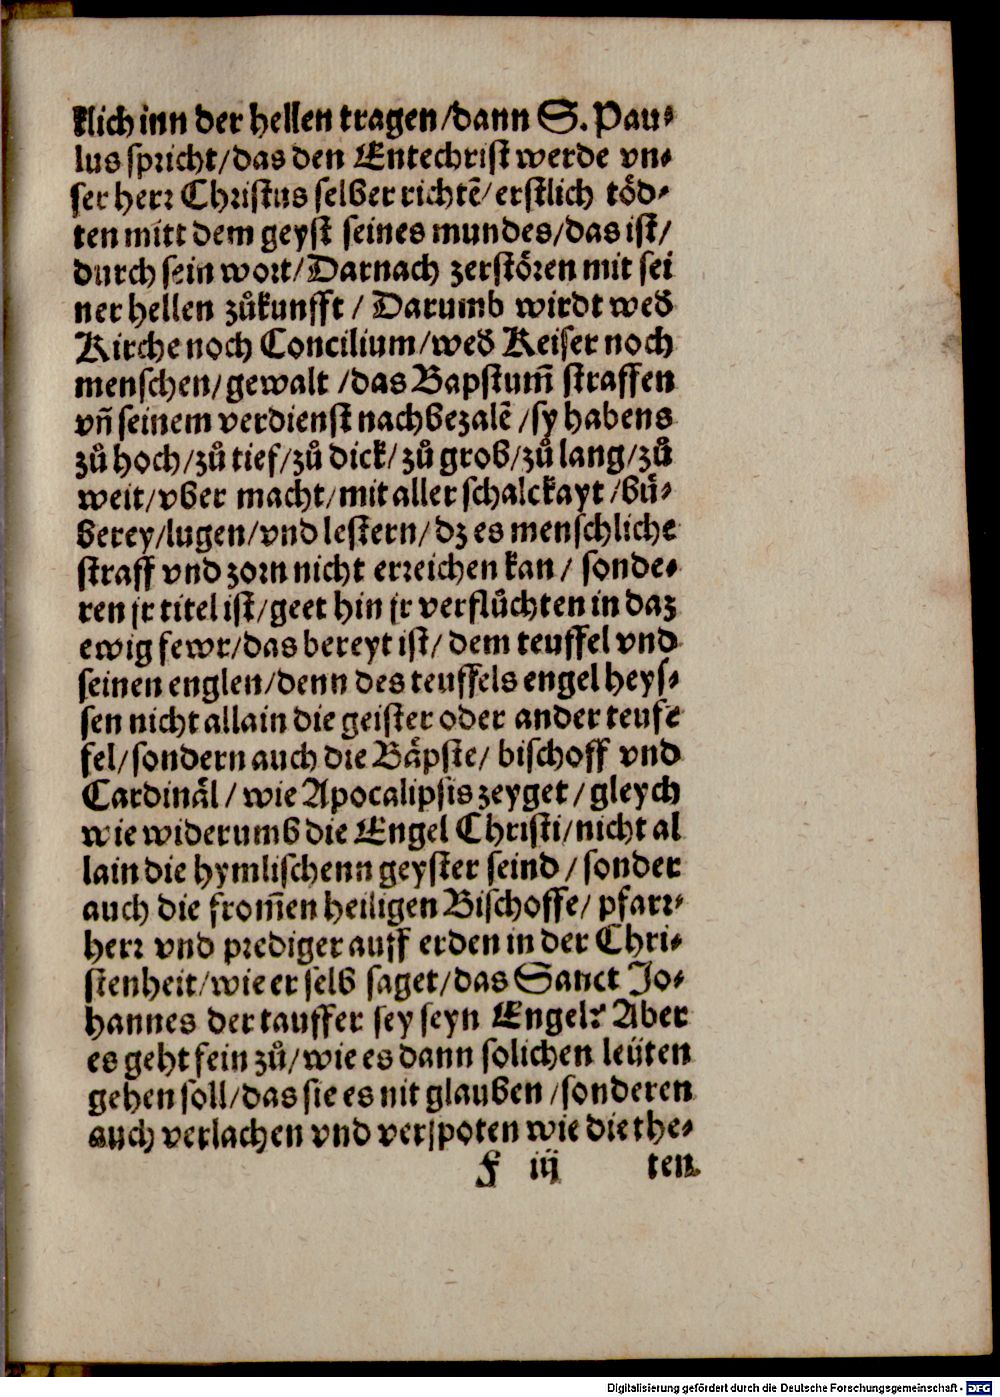 klich inn der hellen tragen/dann S. Pau⸗
lus spricht/das den Entechrist werde vn⸗
ser herr Christus selber richtē/erstlich töd⸗
ten mitt dem geyst seines mundes/das ist/
durch sein wort/Darnach zerstören mit sei
ner hellen zůkunfft / Darumb wirdt wed̄
Kirche noch Concilium/wed̄ Keiser noch
menschen/gewalt /das Bapstum̄ straffen
vn̄ seinem verdienst nachbezalē /sy habens
zů hoch/zů tief/zů dick/zů groß/zů lang/zů
weit/vber macht/mit aller schalckayt /bů⸗
berey/lugen/vnd lestern/dz es menschliche
straff vnd zorn nicht erreichen kan/ sonde⸗
ren jr titel ist/geet hin jr verflůchten in daz
ewig fewr/das bereyt ist/ dem teuffel vnd
seinen englen/denn des teuffels engel heys⸗
sen nicht allain die geister oder ander teufe
fel/sondern auch die Bäpste/ bischoff vnd
Cardinäl / wie Apocalipsis zeyget / gleych
wie widerumb die Engel Christi/nicht al
lain die hymlischenn geyster seind / sonder
auch die from̄en heiligen Bischoffe/ pfarr⸗
herr vnd prediger auff erden in der Chri⸗
stenheit/wie er selb saget/das Sanct Jo⸗
hannes der tauffer sey seyn Engel? Aber
es geht fein zů/wie es dann solichen leüten
gehen soll/das sie es nit glauben /sonderen
auch verlachen vnd verspoten wie die the⸗
F iij ten
Digitalisierung gefördert durch die Deutsche Forschungsgemeinschaft - DFG